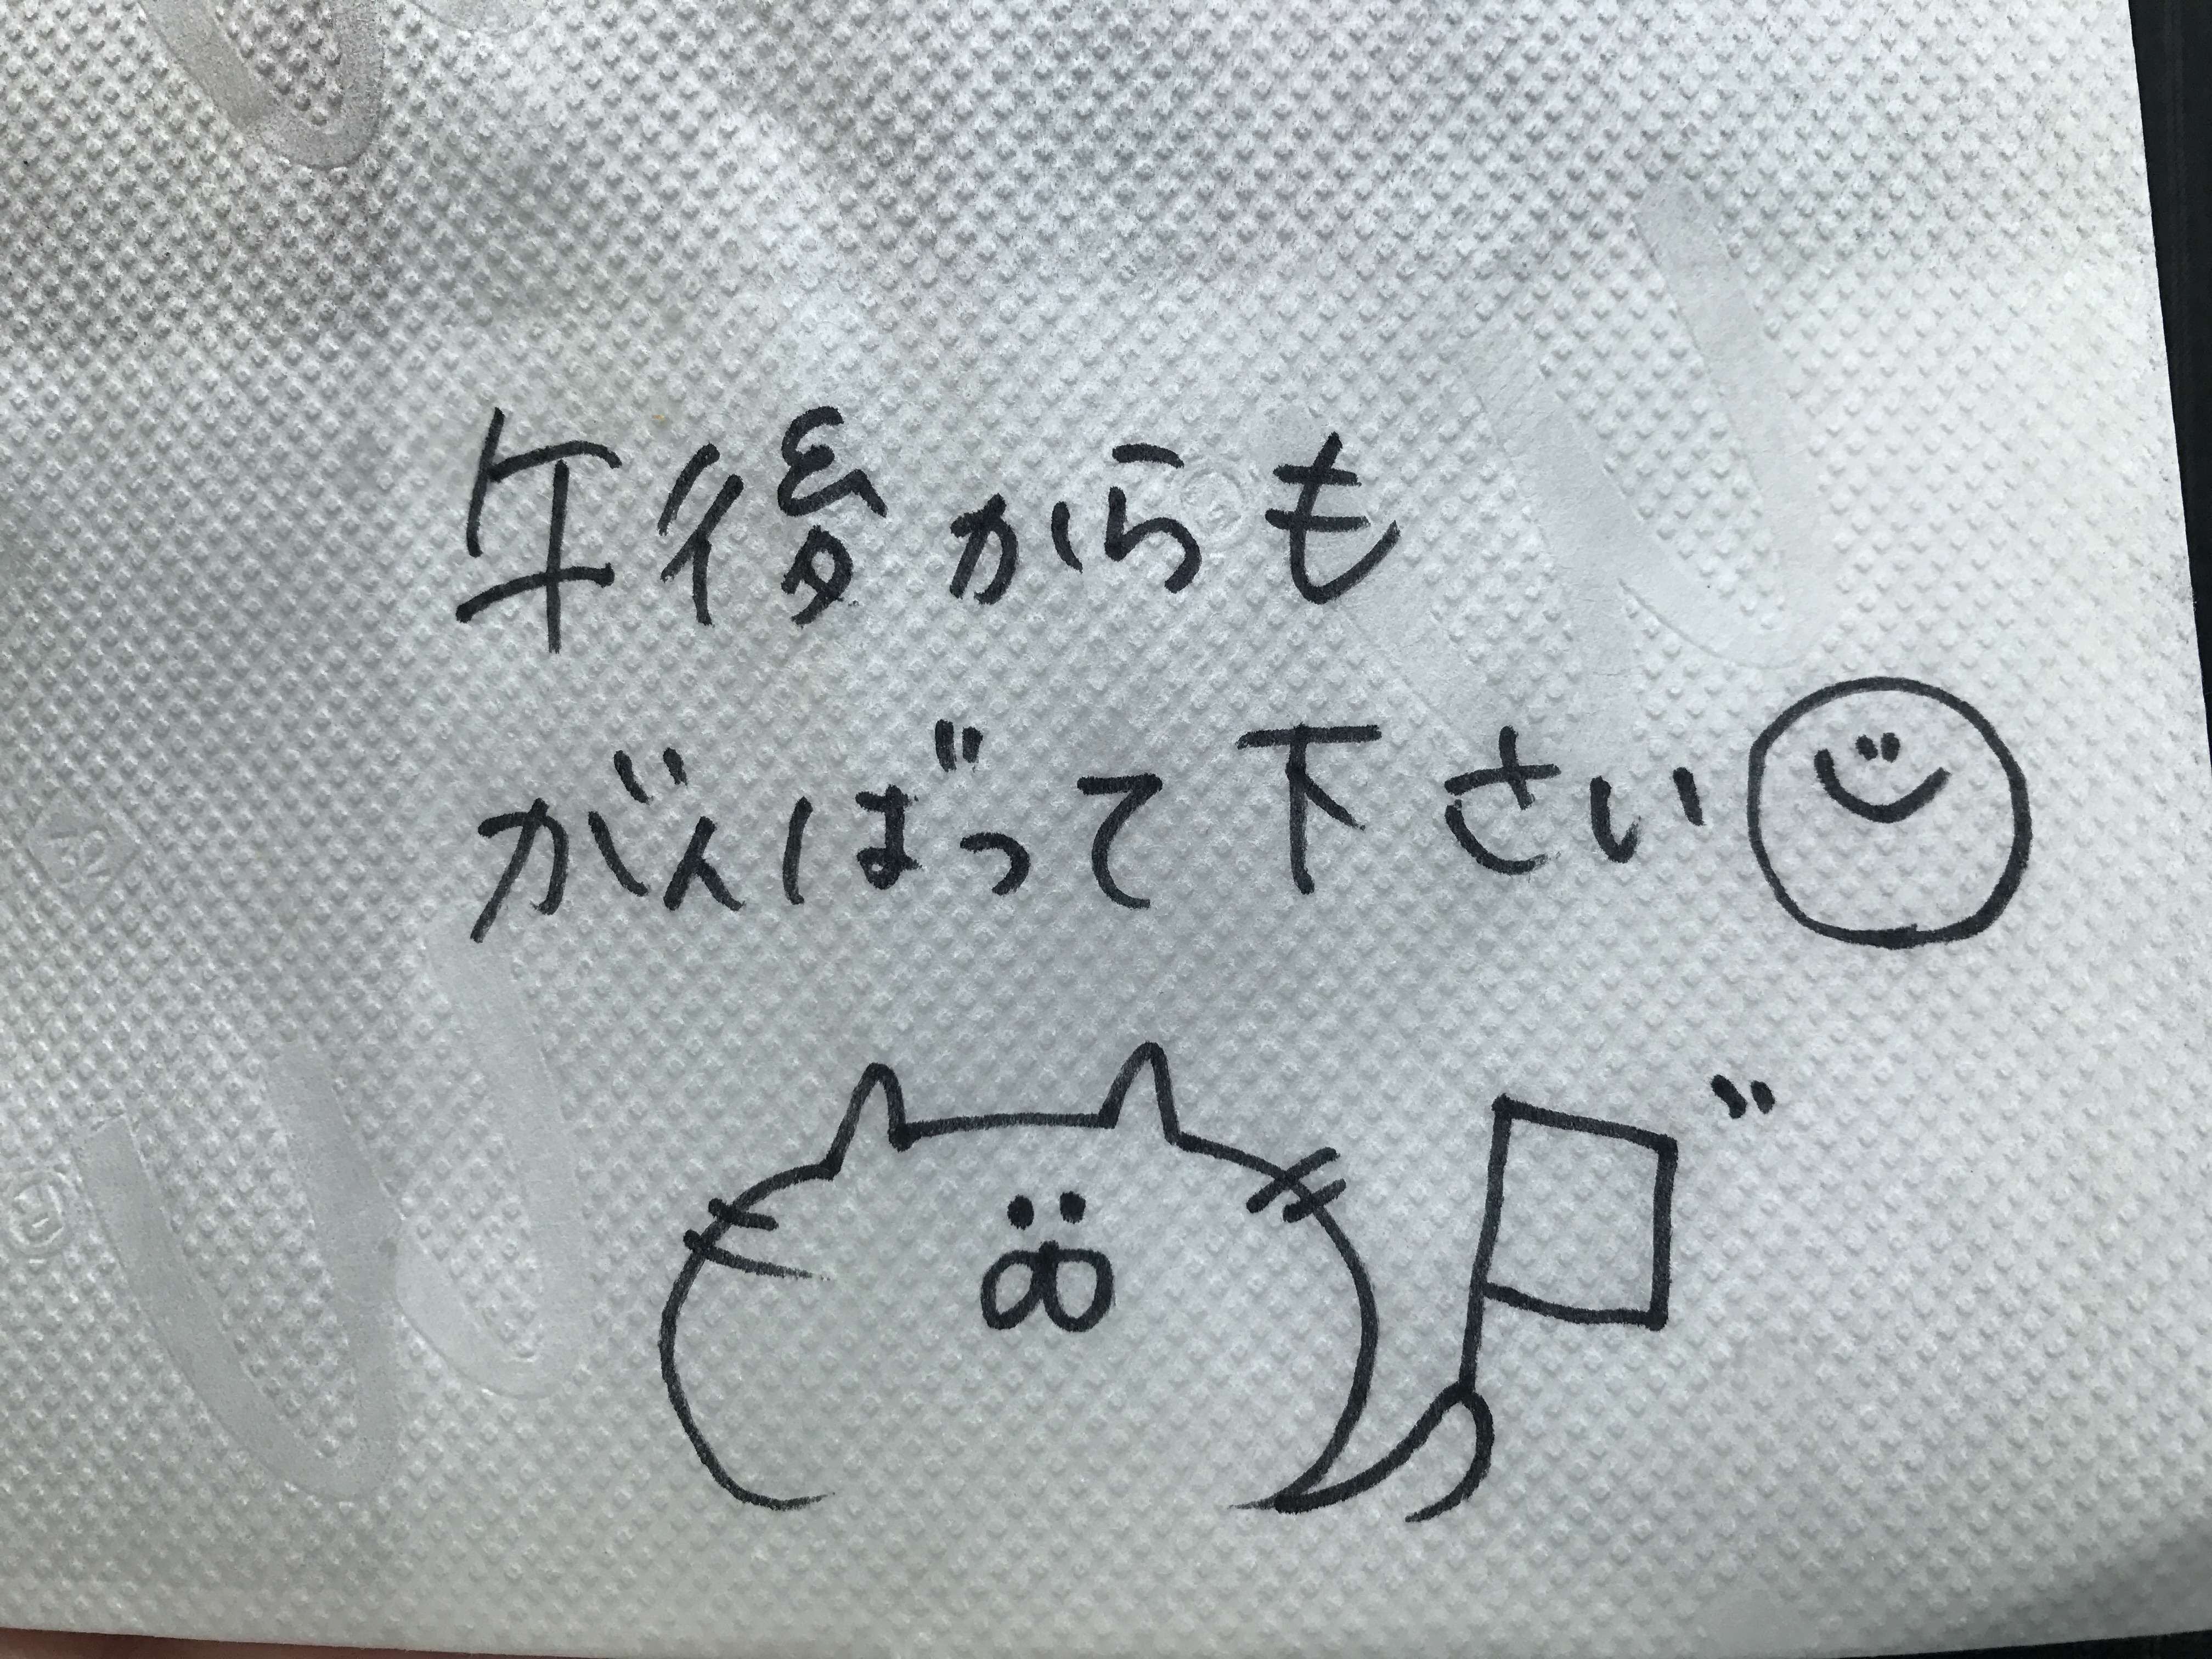 午後からも
がんばって下さい